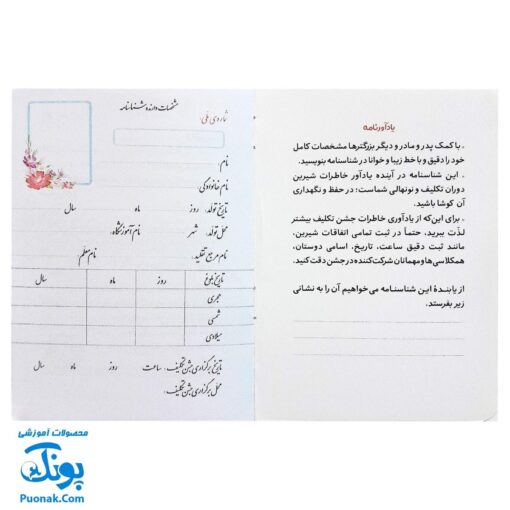 یادآورنامه
• با کمک پدر و مادر و دیگر بزرگترها مشخصات کامل
خود را دقیق و با خط زیبا و خوانا در شناسنامه بنویسید.
• این شناسنامه در آینده یادآور خاطرات شیرین
دوران تکلیف و نونهالی شماست؛ در حفظ و نگهداری
آن کوشا باشید.
• برای این‌که از یادآوری خاطرات جشن تکلیف بیشتر
لذّت ببرید، حتماً در ثبت تمامی اتفاقات شیرین،
مانند ثبت دقیق ساعت، تاریخ، اسامی دوستان،
همکلاسی‌ها و مهمانان شرکت‌کننده در جشن دقت کنید.
از یابندهٔ این شناسنامه می‌خواهیم آن را به نشانی
زیر بفرستد.
مشخصات دارنده شناسنامه
شماره‌ی ملی:
نام:
نام خانوادگی:
تاریخ تولد: روز ماه سال
محل تولد: شهر نام آموزشگاه:
نام مرجع تقلید: نام معلم:
تاریخ بلوغ روز ماه سال
هجری
شمسی
میلادی
تاریخ برگزاری جشن تکلیف: ساعت روز ماه سال
محل برگزاری جشن تکلیف:
محصولات آموزشی
پونک
Puonak.Com